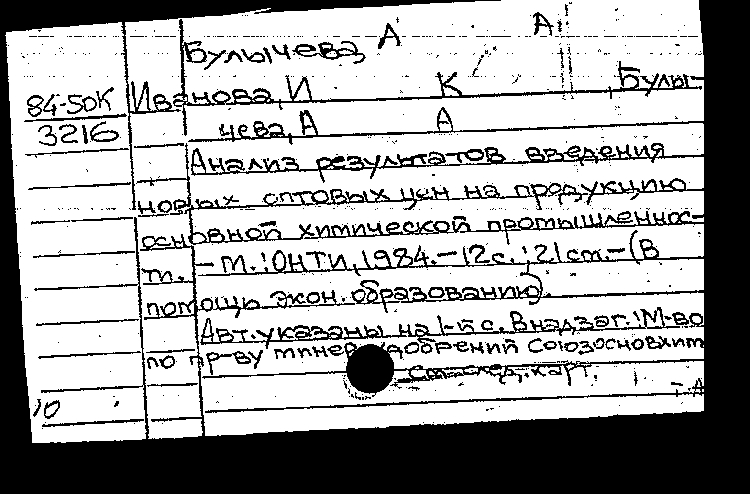 Булычева, А А.
84-50К Иванова, И К , Булы-
3216 чева, А А
Анализ результатов введения
новых оптовых цен на продукцию
основной химической промышленнос-
т. - М.: ОНТИ, 1984. - 12 с.; 21 см. - (В
помощь экон. образованию).
Авт. указаны на 1-й с. В надзаг.: М-во
по пр-ву минер. удобрений Союзосновхим
См. след. карт.
10